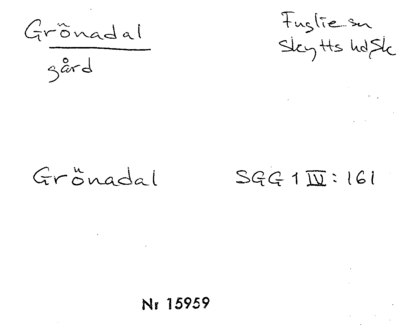 Grönadal
gård
Fuglie sn
Skytts hd, Sk
Grönadal SGG 1 IV: 161
Nr 15959